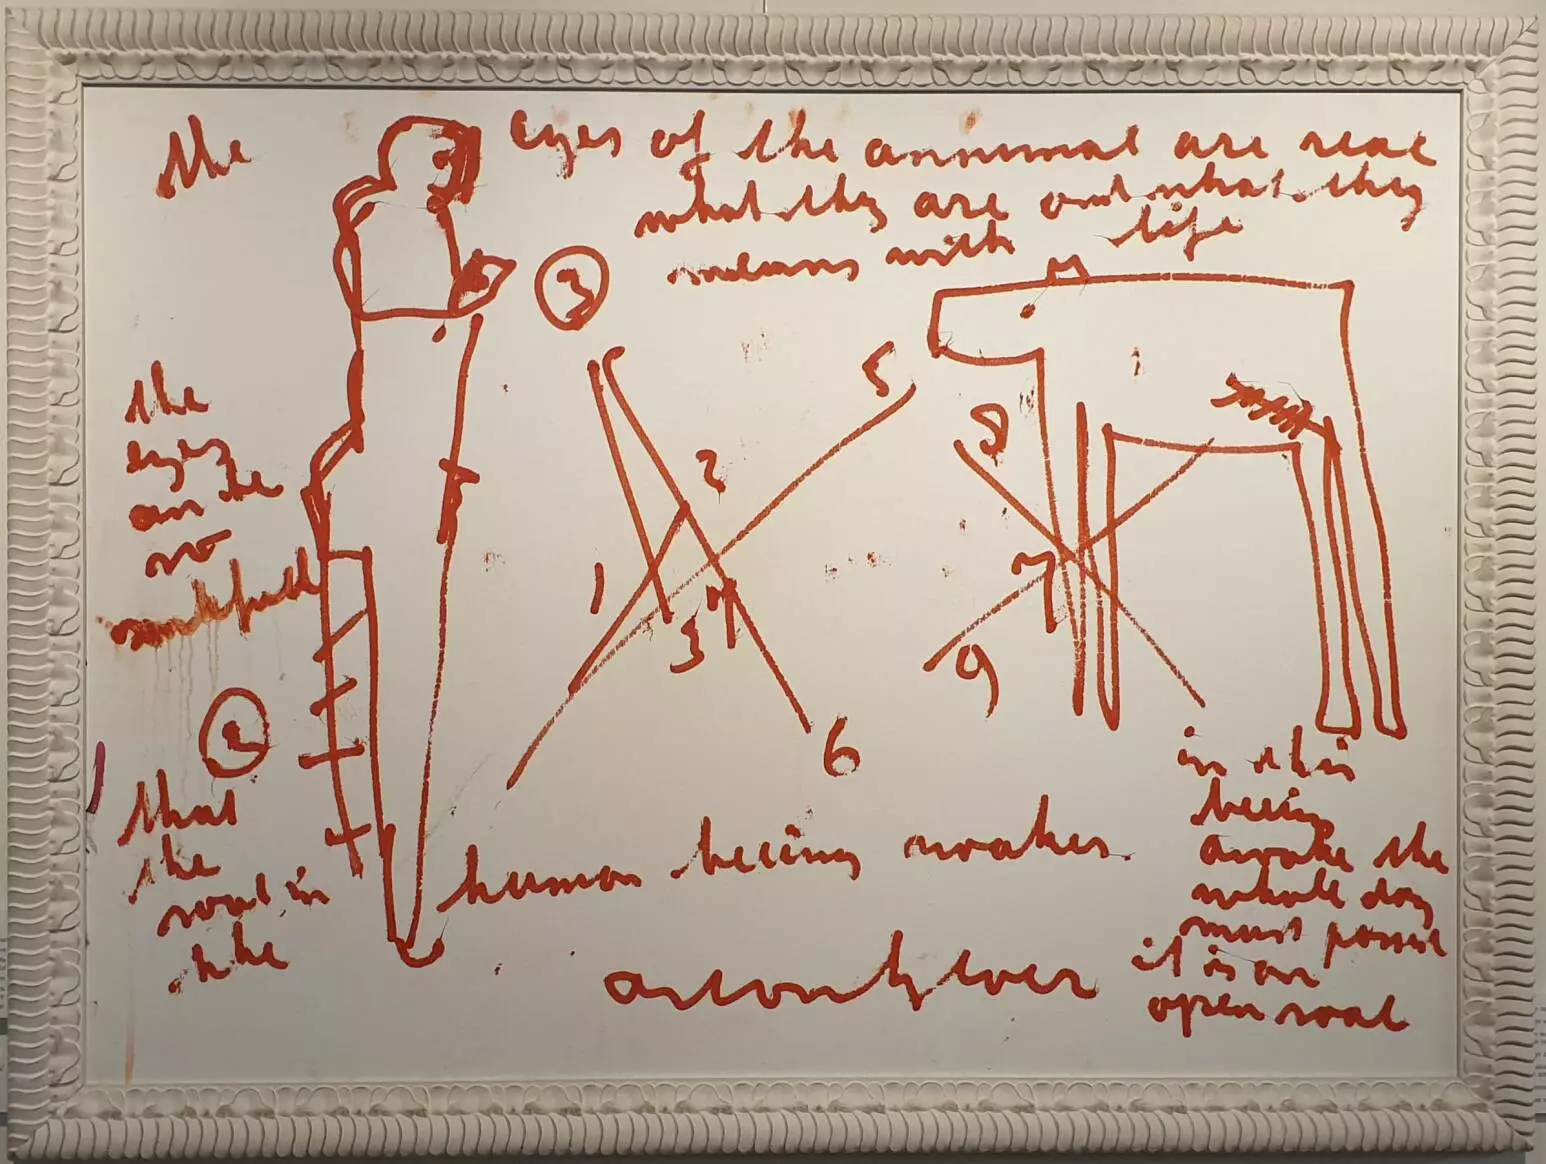 the eyes of the annimal are real
what they are and what they
means with life
3
the
eyes
can be
so
2
that
the
soal in
the
5
2
1
3
4
6
8
7
9
human beeing makes.
in this
beeing
awake the
whole day
must
it is an
open soal